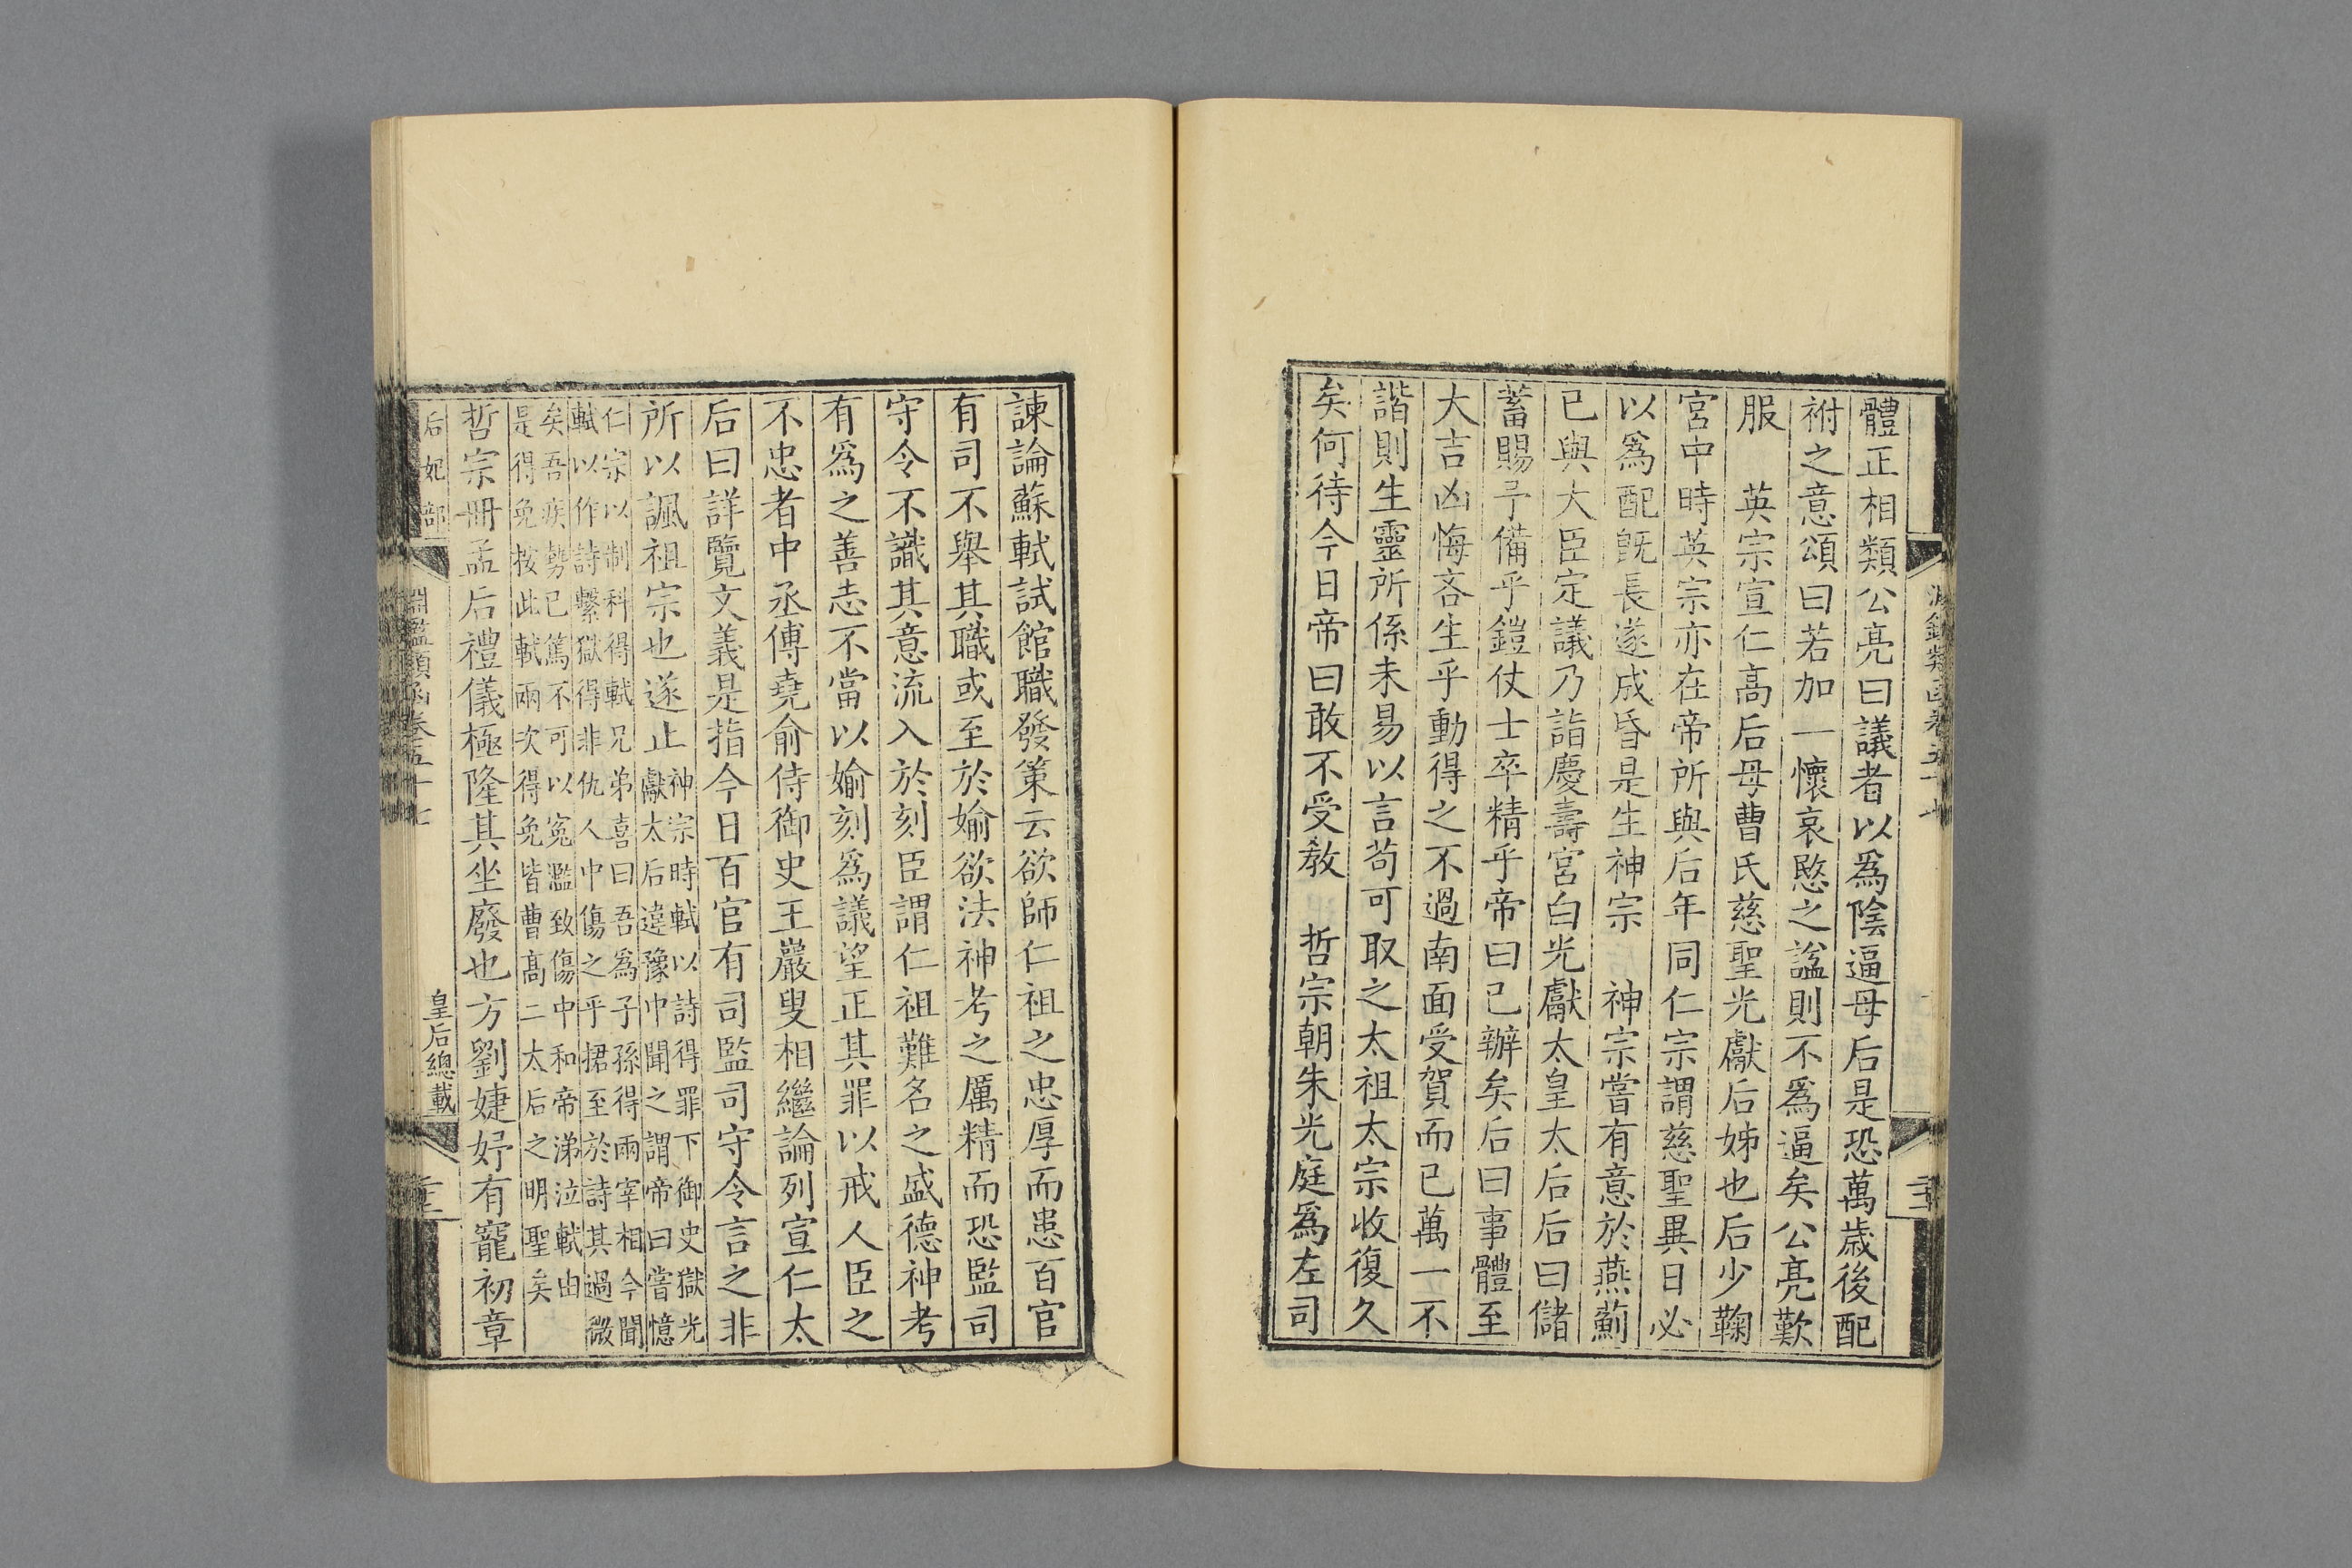 體正相類公亮曰議者以爲陰逼母后是恐萬歲後配
祔之意頌曰若加一懷哀愍之諡則不爲逼矣公亮歎
服　英宗宣仁高后母曹氏慈聖光獻后姊也后少鞠
宮中時英宗亦在帝所與后年同仁宗謂慈聖異日必
以爲配旣長遂成昏是生神宗　神宗嘗有意於燕薊
已與大臣定議乃詣慶壽宮白光獻太皇太后后曰儲
蓄賜予備乎鎧仗士卒精乎帝曰已辦矣后曰事體至
大吉凶悔吝生乎動得之不過南面受賀而已萬一不
諧則生靈所係未易以言苟可取之太祖太宗收復久
矣何待今日帝曰敢不受敎　哲宗朝朱光庭爲左司
諫論蘇軾試館職發策云欲師仁祖之忠厚而患百官
有司不舉其職或至於媮欲法神考之厲精而恐監司
守令不識其意流入於刻臣謂仁祖難名之盛德神考
有爲之善志不當以媮刻爲議望正其罪以戒人臣之
不忠者中丞傅堯俞侍御史王巖叟相繼論列宣仁太
后曰詳覽文義是指今日百官有司監司守令言之非
所以諷祖宗也遂止神宗時軾以詩得罪下御史獄光
獻太后違豫中聞之謂帝曰嘗憶
仁宗以制科得軾兄弟喜曰吾爲子孫得兩宰相今聞
軾以作詩繫獄得非仇人中傷之乎捃至於詩其過微
矣吾疾勢已篤不可以冤濫致傷中和帝涕泣軾由
是得免按此軾兩次得免皆曹高二太后之明聖矣
哲宗冊孟后禮儀極隆其坐廢也方劉婕妤有寵初章
后妃部
淵鑑類函卷五十七
皇后總載